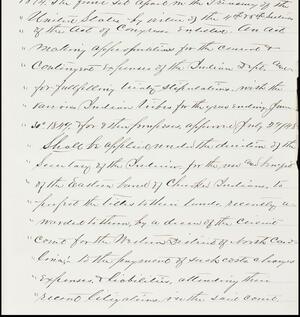 1874. The fund set apart in the Treasury of the
" United States by virtue of the 4th & 5th Sections
" of the Act of Congress Entitled "An Act
" making appropriations for the current &
" Contingent Expenses of the Indian Dept. &
" for fulfilling treaty stipulations with the
" various Indian tribes for the year ending June
" 30th 1849, & for other purposes, approved July 29 1848
" Shall be applied under the direction of the
" Secretary of the Interior, for the use and benefit
" of the Eastern band of Cherokee Indians, to
" perfect the titles to their lands recently a-
" warded to them, by a decree of the circuit
" court for the Western District of North Caro-
" lina; to the payment of such costs charges
" Expenses, & liabilities, attending their
" recent litigations in the said court